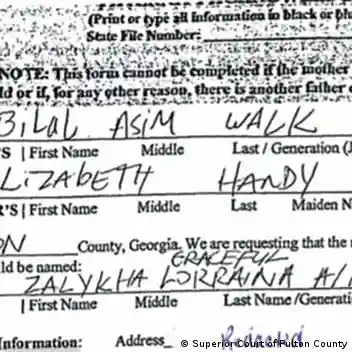 (Print or type all information in black or blu
State File Number:
NOTE: This form cannot be completed if the mother
ld or if, for any other reason, there is another father o
Bilal ASIM WALK
'S | First Name Middle Last / Generation (J
LIZABETH HANDY
R'S | First Name Middle Last Maiden N
ON County, Georgia. We are requesting that the
ld be named: GRACEFUL
ZALYKHA LORRAINA Al
| First Name Middle Last Name /Generati
Information: Address
© Superior Court of Fulton County